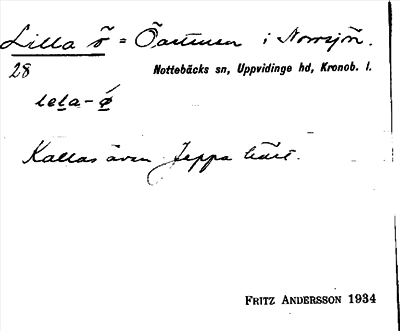 Lilla ö = Öarmen i Norrsjön.
28 Nottebäcks sn, Uppvidinge hd, Kronob. l.
lela-ö
Kallas även Jeppa
FRITZ ANDERSSON 1934